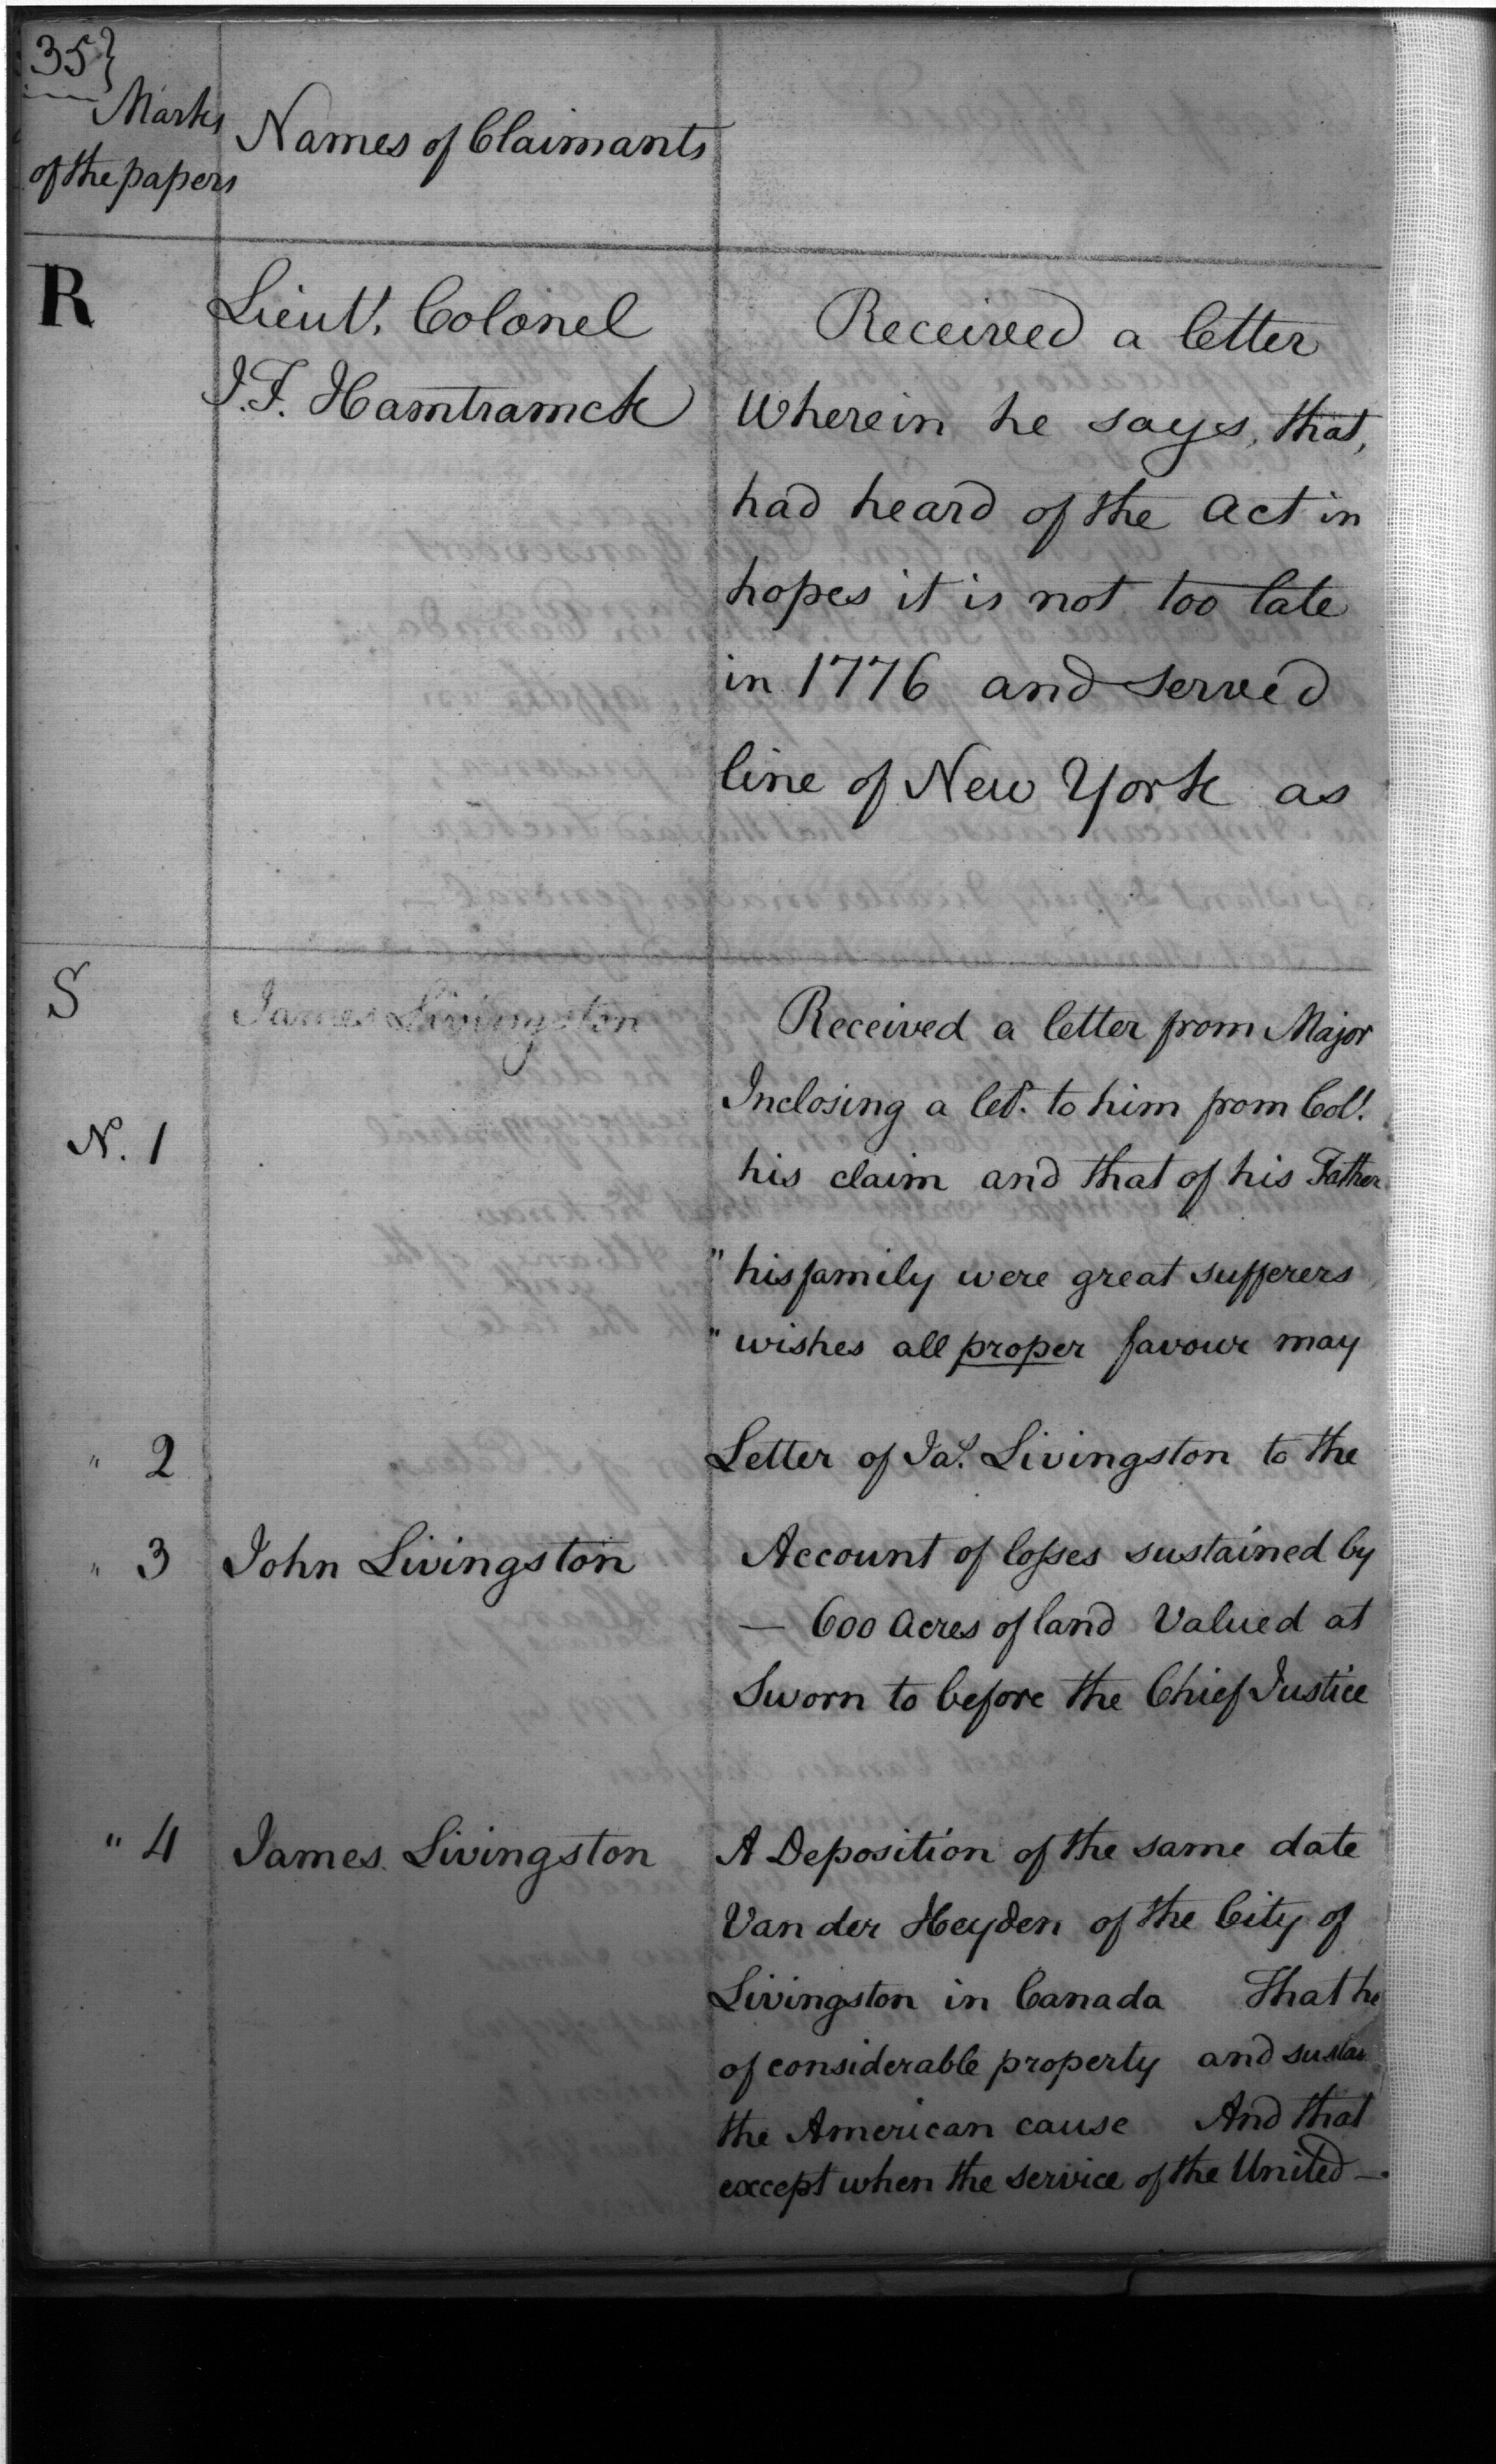 35}
Marks
of the papers
Names of Claimants
R
Lieut. Colonel
J. F. Hamtramck
Received a letter
Wherein he says, that,
had heard of the Act in
hopes it is not too late
in 1776 and served
line of New York as
S
James Livingston
Received a letter from Major
N. 1
Inclosing a let. to him from Col.
his claim and that of his Father
" his family were great sufferers
" wishes all proper favour may
" 2
Letter of Jas. Livingston to the
" 3
John Livingston
Account of losses sustained by
— 600 Acres of land Valued at
Sworn to before the Chief Justice
" 4
James Livingston
A Deposition of the same date
Van der Heyden of the City of
Livingston in Canada That he
of considerable property and sustai
the American cause And that
except when the service of the United —